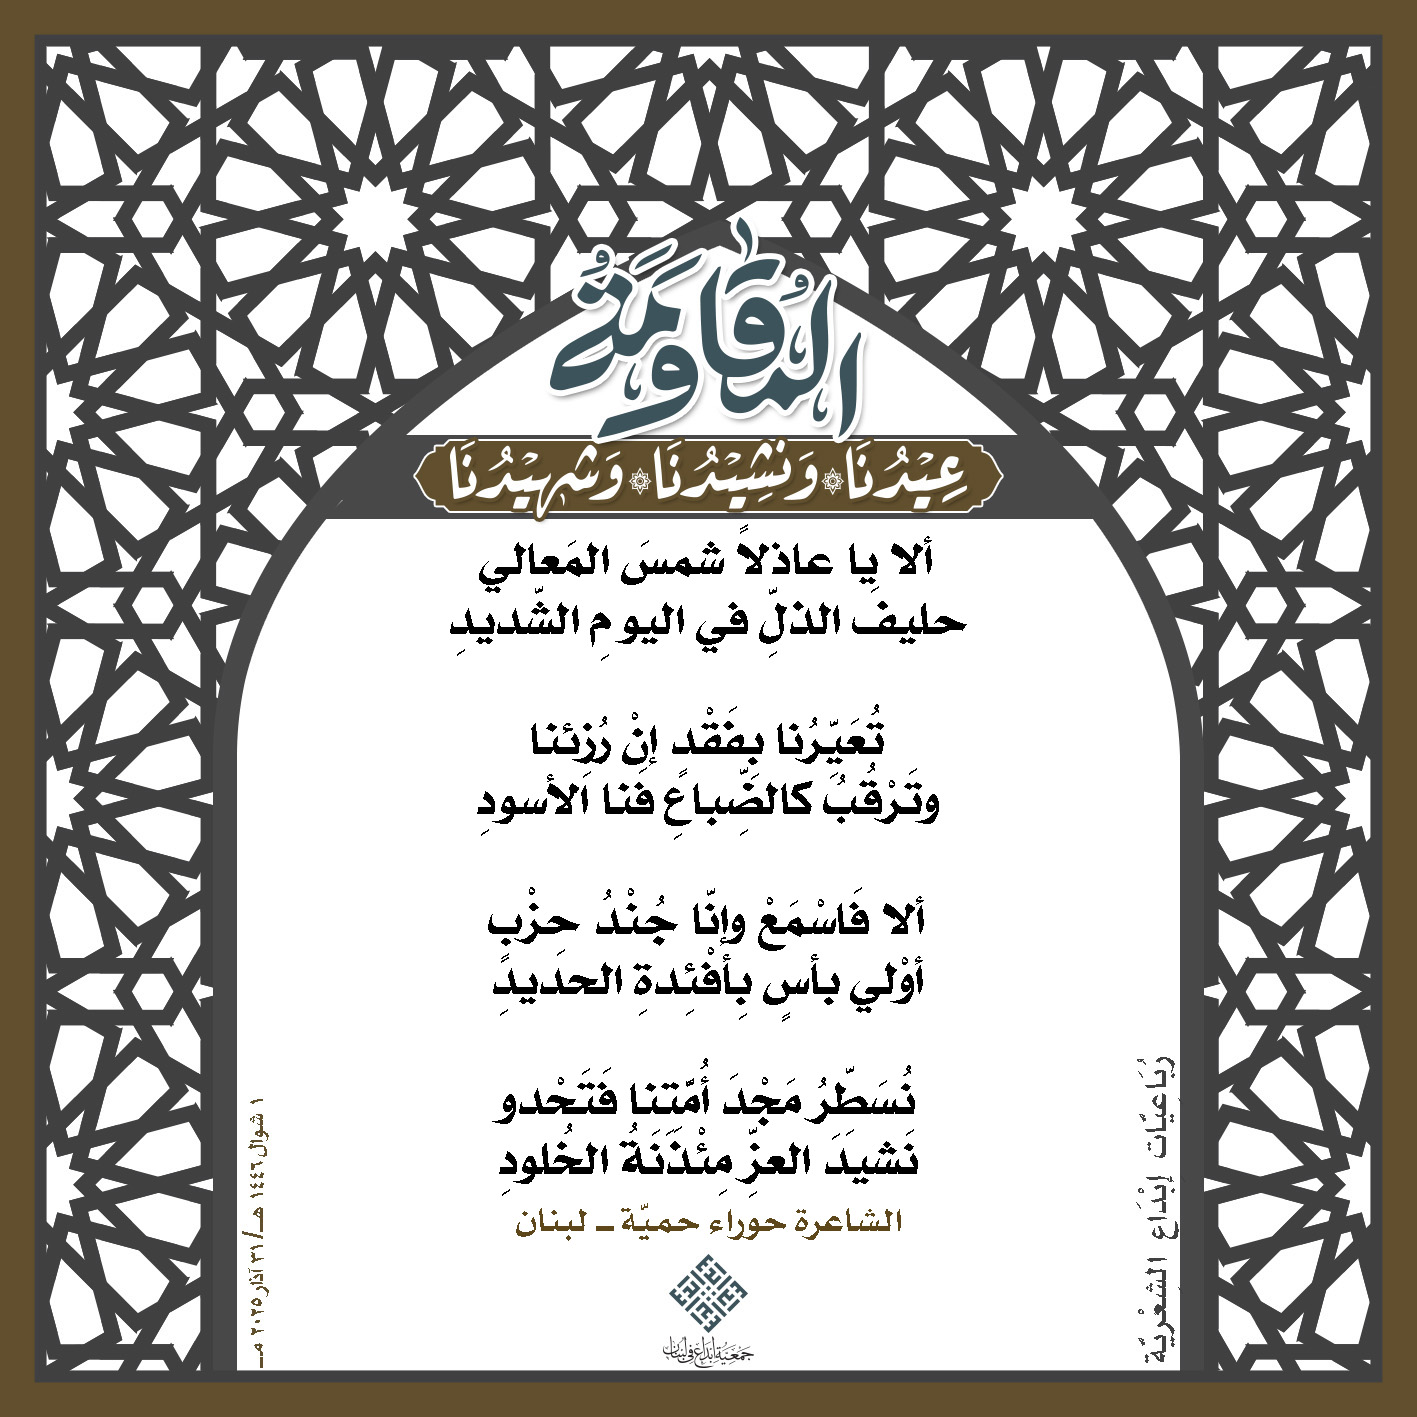 المُقاوَمَةُ
عِيْدُنَا وَنَشِيْدُنَا وَشَهِيْدُنَا
ألا يا عاذلاً شمسَ المَعالي
حليفَ الذلِّ في اليومِ الشّديدِ
تُعَيِّرُنا بِفَقْدٍ إنْ رُزِئنا
وتَرْقُبُ كالضِّباعِ فَنا الأسودِ
ألا فَاسْمَعْ وإنّا جُنْدُ حِزْبٍ
أوْلي بأسٍ بِأفْئِدةِ الحَديدِ
نُسَطِّرُ مَجْدَ أُمَّتنا فَتَحْدو
نَشيدَ العزِّ مِئْذَنَةُ الخُلودِ
الشاعرة حوراء حميّة ــ لبنان
جمعية إبداع في لبنان
رُبَاعِيّات إبْدَاع الشِعْريّة
١ شوال ١٤٤٦ هـ/ ٣١ آذار ٢٠٢٥ مـ